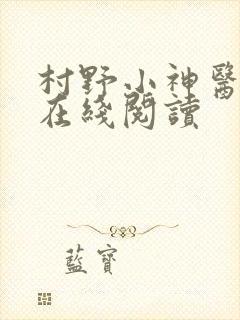 村野小神醫
在綫閱讀
藍寶